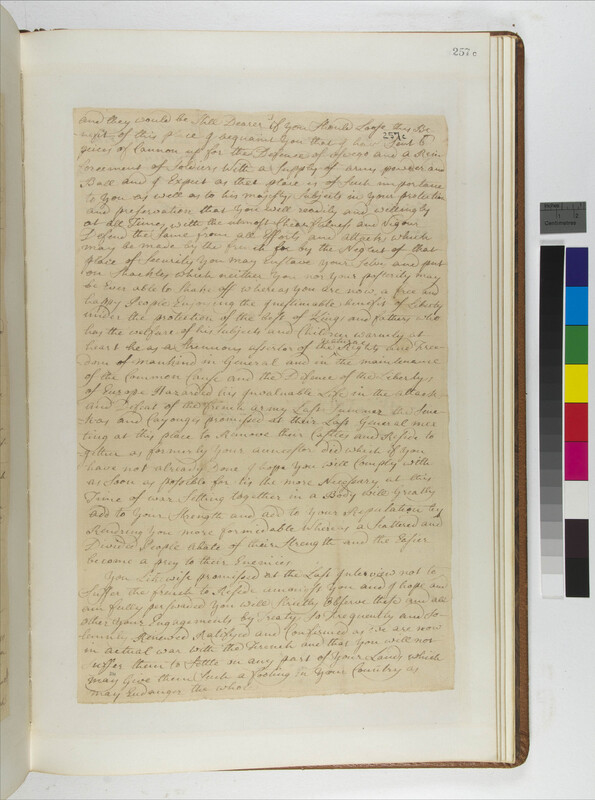 257c
and they would be Still Dearer if you Should Loose this Be
nefit of this place I acquaint you that I have Sent 6
257c
pieces of Cannon up for the Defence of Oswego and a Rein
forcement of Soldiers with a Supply of arms powder and
Ball and I Expect as that place is of Such importance
to You as well as to his majestys Subjects in your protection
and preservation that You will readily and willingly
at all Times with the utmost Chearfullness and Vigour
Defend the same from all Efforts and attacks which
may be made by the french for by the Neglect of that
place of Security You may Enslave your Selves and put
on Shackles which neither You nor your posterity may
be Ever able to Shake off whereas you are now a free and
happy People Enjoying the Inestimable benefit of Liberty
under the protection of the best of Kings and fathers who
has the welfare of his Subjects and Children warmly at
heart he as a Strenuous assertor of the natural Rights and free
dom of mankind in General and in the maintenance
of the Common Cause and the Defence of the Libertys
of Europe Hazarded his Invaluable Life in the attack
and Defeat of the French army Last Summer the Sene
kas and Cayouges promised at their Last General mee
ting at this place to Remove their Castles and Reside to
gether as formerly Your ancestors did which if you
have not already Done I hope You will Comply with
as Soon as possible for tis the more Necessary at this
Time of war Setling together in a Body will Greatly
add to Your Strength and add to Your Reputation by
Rendring You more formidable whereas a Scattered and
Divided People abate of their Strength and the Easier
become a prey to their Enemies
You Likewise promised at the Last Interview not to
Suffer the french to Reside amongst You and I hope and
am fully perswaded You will Strictly Observe these and all
other Your Engagements by treaty So frequently and So
lemnly Renewed Ratifyed and Confirmed as We are now
in actual war with the French and that You will not
suffer them to Settle in any part of Your Lands which
may Give them Such a footing in Your Country as
may Endanger the whole
Inches
Centimetres